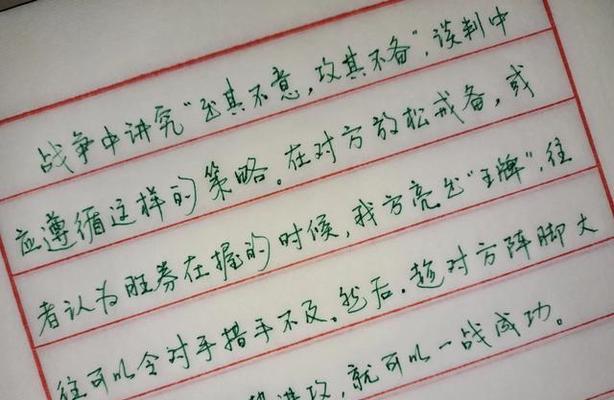 战争中讲究“出其不意，攻其不备”，谈判中
应遵循这样的策略。在对方放松戒备，或
者认为胜券在握的时候，我方亮出“王牌”，往
往可以令对手措手不及。然后，趁对方阵脚大
进攻，就可以一战成功。